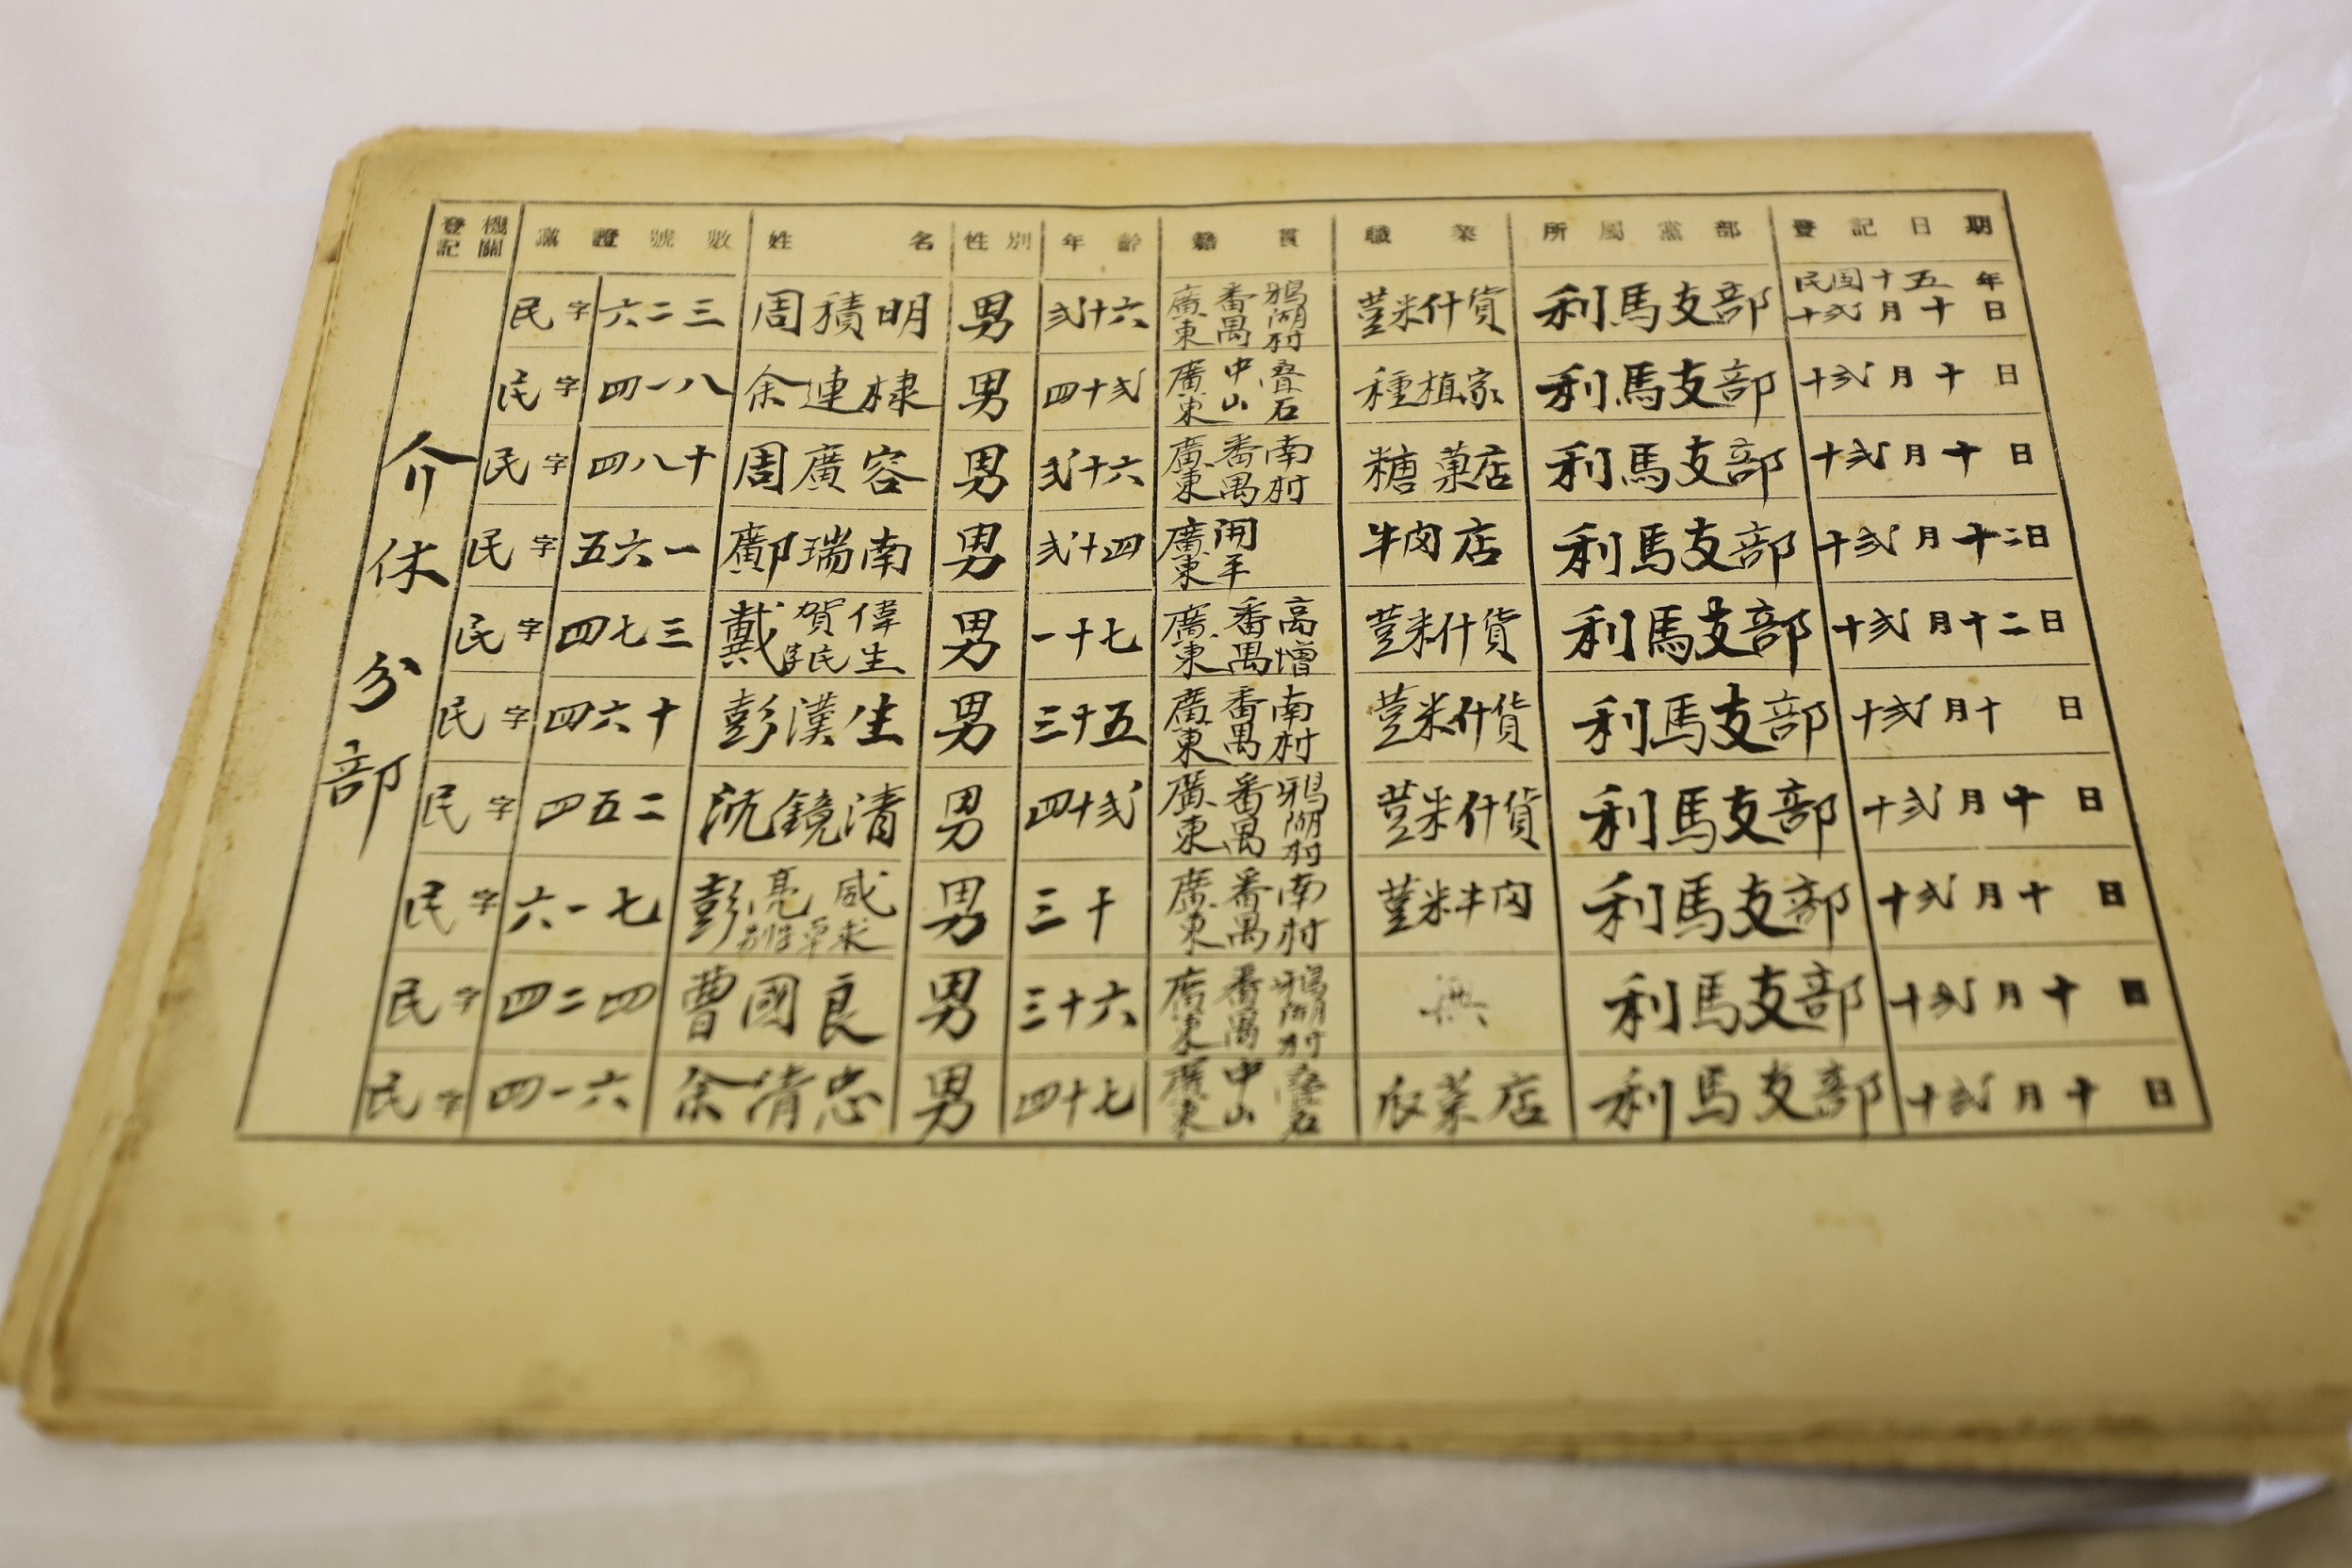 登記機關 黨證號數 姓名 性別 年齡 籍貫 職業 所屬黨部 登記日期
介休分部
民字 六二三 周積明 男 弍十六 廣東番禺鴉湖村 荳米什貨 利馬支部 民國十五年十弍月十日
民字 四一八 余連棣 男 四十弍 廣東中山疊石 種植家 利馬支部 十弍月十日
民字 四八十 周廣容 男 弍十六 廣東番禺南村 糖菓店 利馬支部 十弍月十日
民字 五六一 鄺瑞南 男 弍十四 廣東開平 牛肉店 利馬支部 十弍月十二日
民字 四七三 戴賀偉字民生 男 一十七 廣東番禺高增 荳米什貨 利馬支部 十弍月十二日
民字 四六十 彭漢生 男 三十五 廣東番禺南村 荳米什貨 利馬支部 十弍月十日
民字 四五二 沈鏡清 男 四十弍 廣東番禺鴉湖村 荳米什貨 利馬支部 十弍月十日
民字 六一七 彭亮威 男 三十 廣東番禺南村 荳米牛肉 利馬支部 十弍月十日
民字 四二四 曹國良 男 三十六 廣東番禺鴉湖村 無 利馬支部 十弍月十日
民字 四一六 余清忠 男 四十七 廣東中山疊石 店 利馬支部 十弍月十日